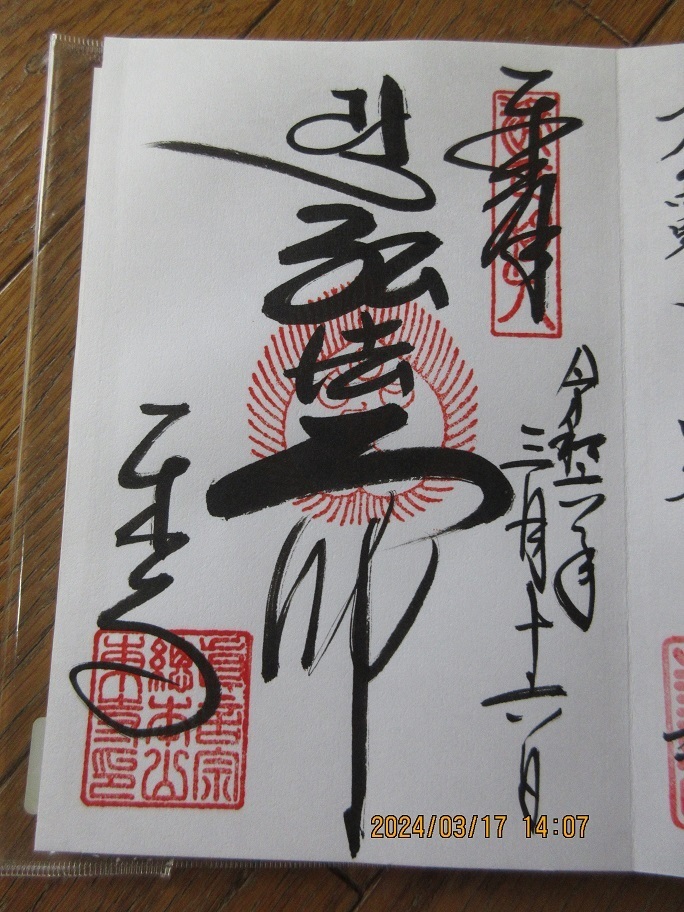 奉拝
令和六年
三月十六日
弘法大師
東寺
真言宗
総本山
東寺印
2024/03/17 14:07